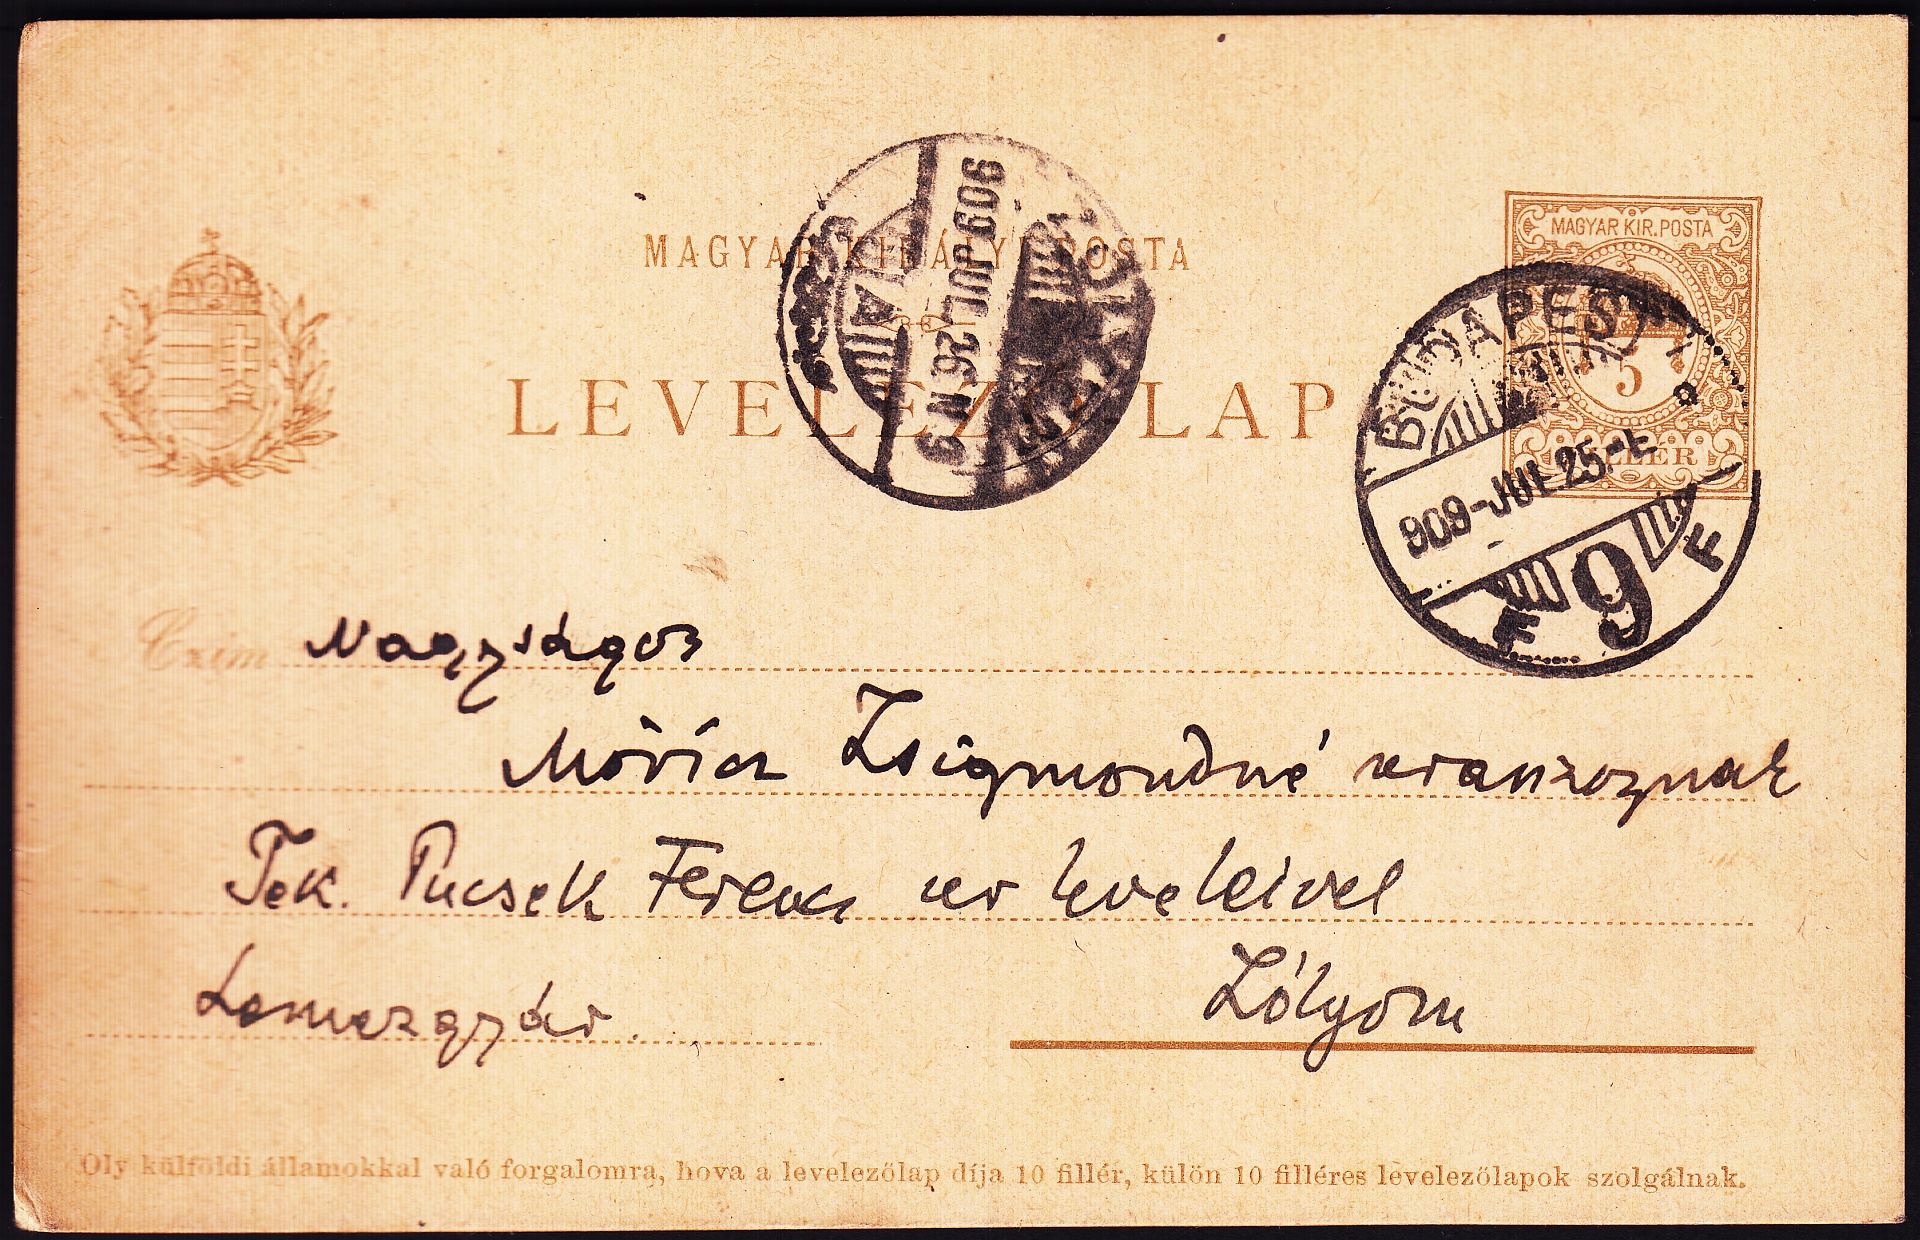 MAGYAR KIRÁLYI POSTA
LEVELEZŐ LAP
MAGYAR KIR. POSTA
5
FILLÉR
909 JUL. 26 N 9
A
BUDAPEST
909 - JUL 25
F 9 F
Czím Nagyságos
Móricz Zsigmondné urasszonynak
Tek. Pucsek Ferencz ur leveleivel
Lemezgyár. Zólyom
Oly külföldi államokkal való forgalomra, hova a levelezőlap díja 10 fillér, külön 10 filléres levelezőlapok szolgálnak.